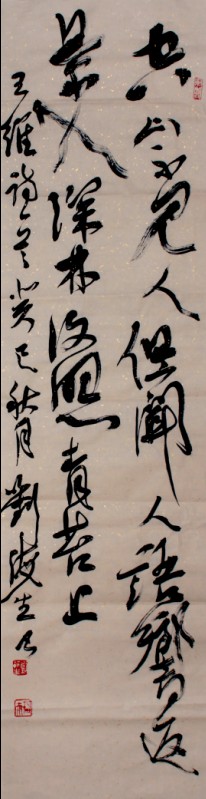 空山不見人但聞人語響返
景入深林復照青苔上
王維詩一首癸巳秋月劉生